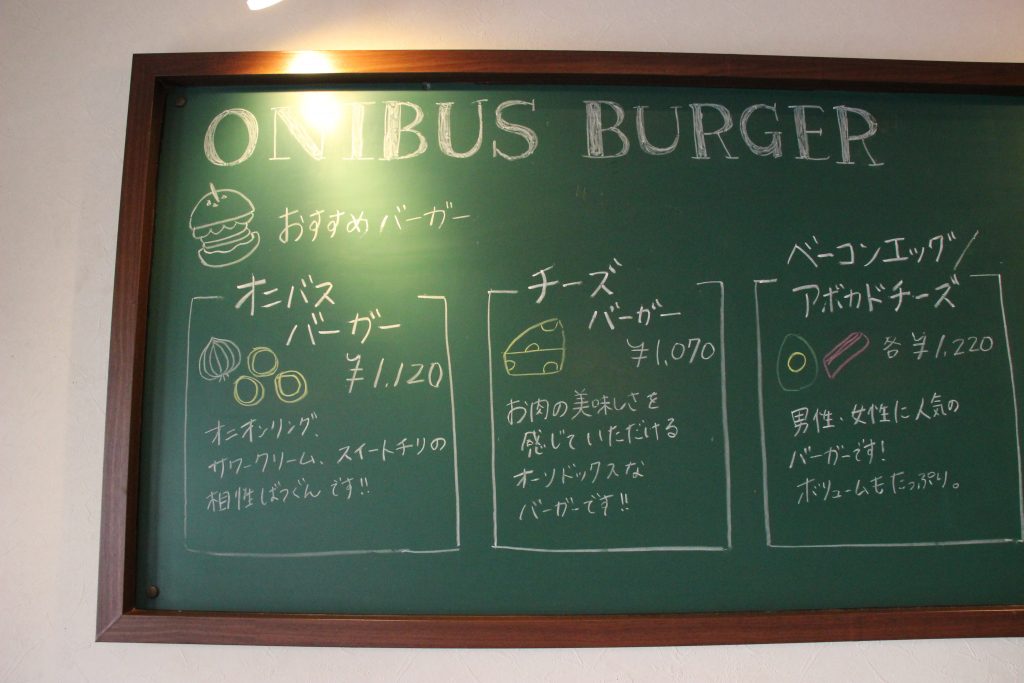 ONIBUS BURGER
おすすめバーガー
オニバス
バーガー
¥1,120
オニオンリング、
サワークリーム、スイートチリの
相性ばつぐんです!!
チーズ
バーガー
¥1,070
お肉の美味しさを
感じていただける
オーソドックスな
バーガーです!!
ベーコンエッグ/
アボカドチーズ
各¥1,220
男性、女性に人気の
バーガーです!
ボリュームもたっぷり。